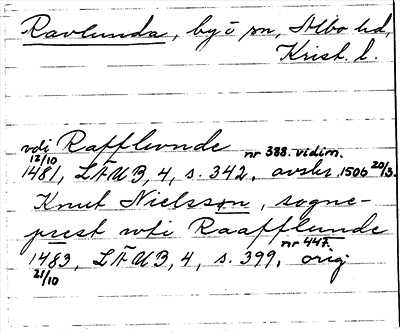 Ravlunda, by i sn, Albo hd,
Krist. l.
vdi Rafflvnde
12/10 nr 388. vidim.
1481, LÄUB, 4, s. 342, avskr. 1506 20/3.
Knut Nielsson, sogne-
prest wti Raafflunde
nr 447.
1483, LÄUB, 4, s. 399, orig
21/10